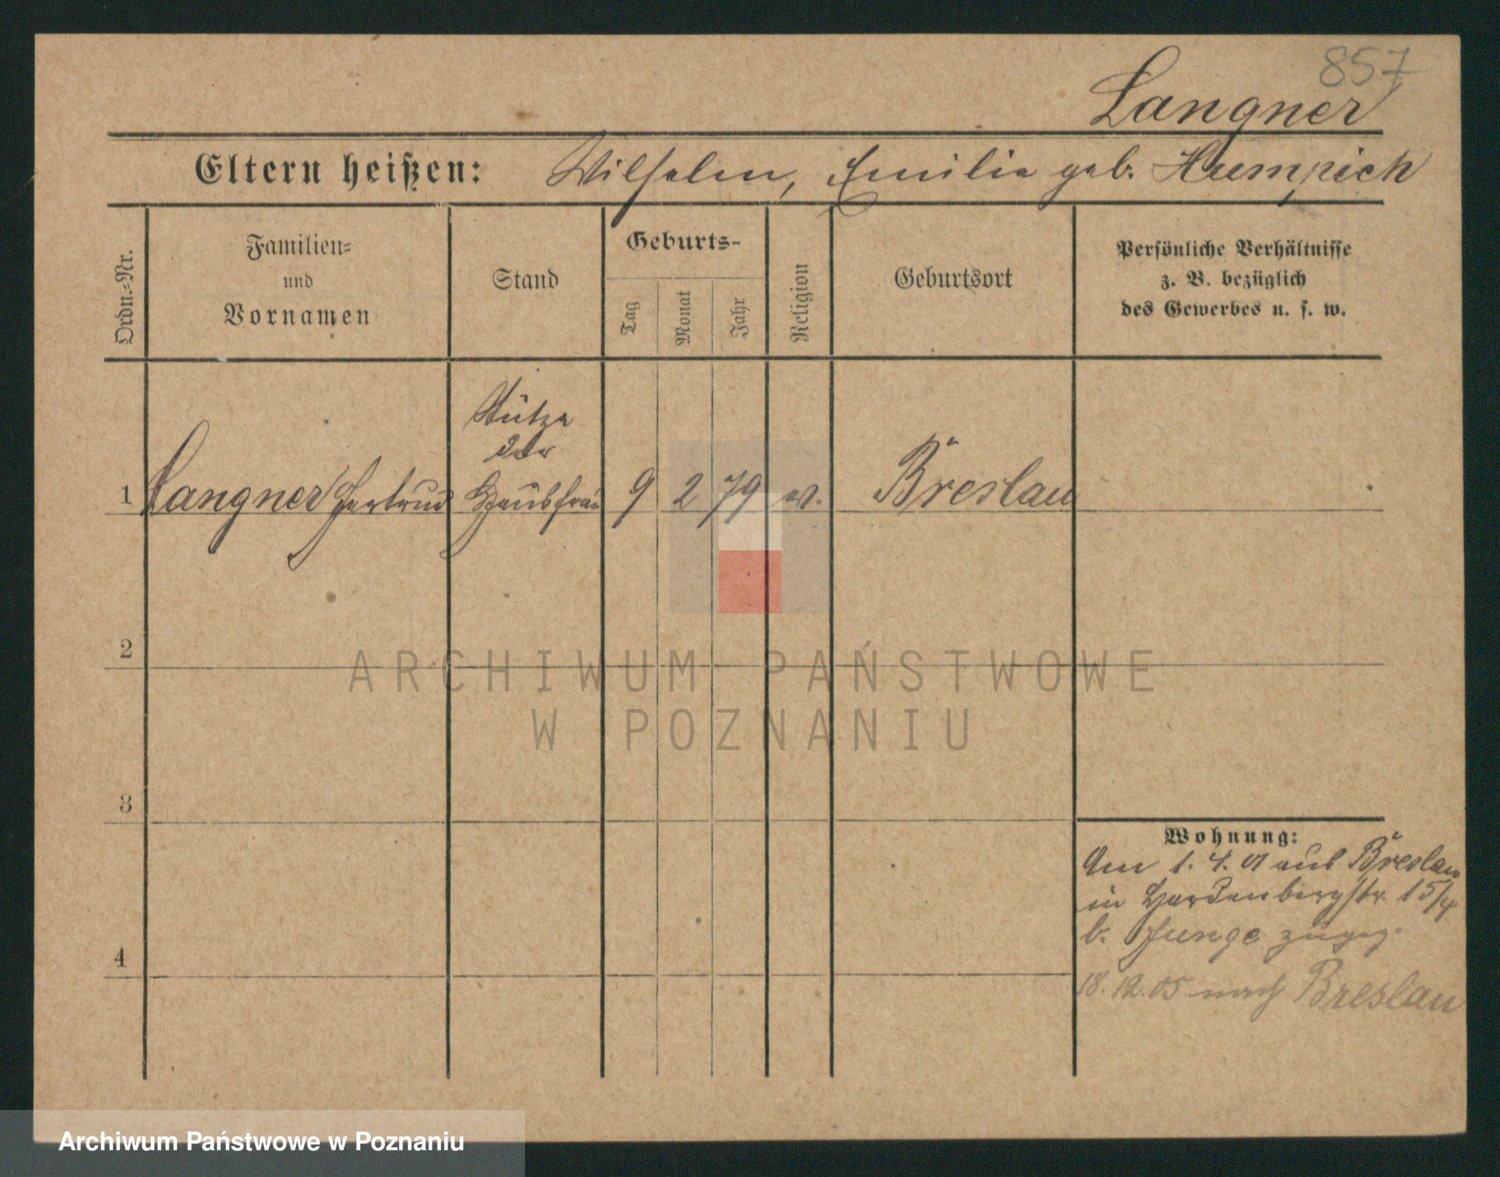 857
Langner
Eltern heißen: Wilhelm, Emilie geb. Humpich
Ordn.-Nr.
Familien-
und
Vornamen
Stand
Geburts-
Tag
Monat
Jahr
Religion
Geburtsort
Persönliche Verhältnisse
z. B. bezüglich
des Gewerbes u. s. w.
Stütze
der
1 Langner Gertrud Hausfrau 9 2 79 Breslau
2
ARCHIWUM PAŃSTWOWE
W POZNANIU
3
Wohnung:
Am 1. 4. 01 aus Breslau
in Hardenbergstr. 15/4
b. Junge zugez.
4
18. 12. 05 nach Breslau
Archiwum Państwowe w Poznaniu